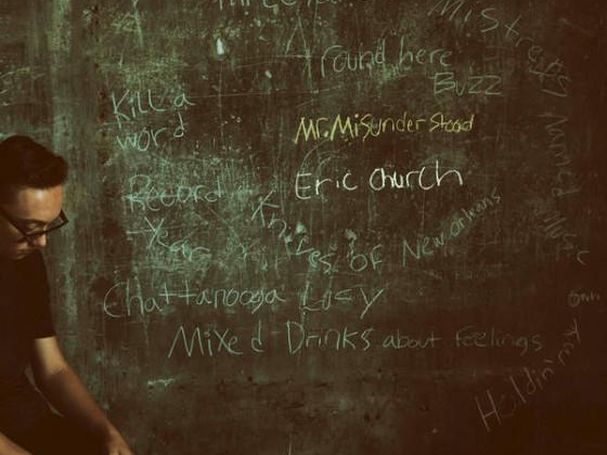 Mistress
Named Music
Round here
Buzz
Kill a
word
Mr. Misunderstood
Eric Church
Record
Year
Knives of New Orleans
Chattanooga Lucy
Mixed Drinks about feelings
Holdin' my